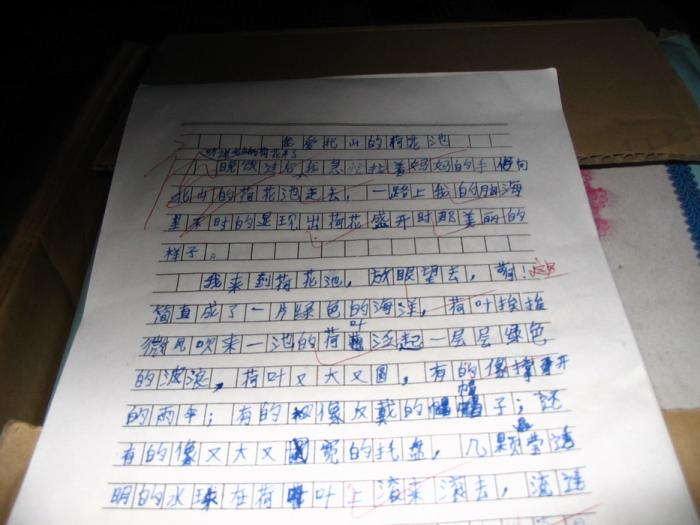 我爱北山的荷花池
听说北山的荷花开了
晚饭过后我急忙拉着妈妈的手便向
北山的荷花池走去，一路上我的脑海
里不时的显现出荷花盛开时那美丽的
样子。
我来到荷花池，放眼望去，啊！
简直成了一片绿色的海洋，荷叶挨挨
微风吹来一池的荷叶泛起一层层绿色
的波浪，荷叶又大又圆，有的像撑开
的雨伞；有的像戴的帽子；还
有的像又大又圆宽的托盘，几颗晶莹透
明的水珠在荷叶上滚来滚去，流连